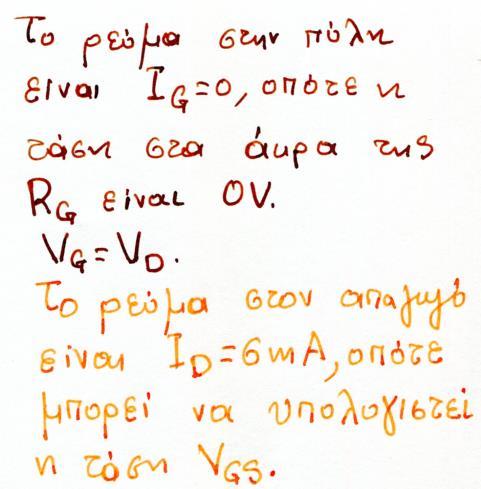 Το ρεύμα στην πύλη
είναι I_G=0, οπότε η
τάση στα άκρα της
R_G είναι 0V.
V_G=V_D.
Το ρεύμα στον απαγωγό
είναι I_D=6mA, οπότε
μπορεί να υπολογιστεί
η τάση V_GS.